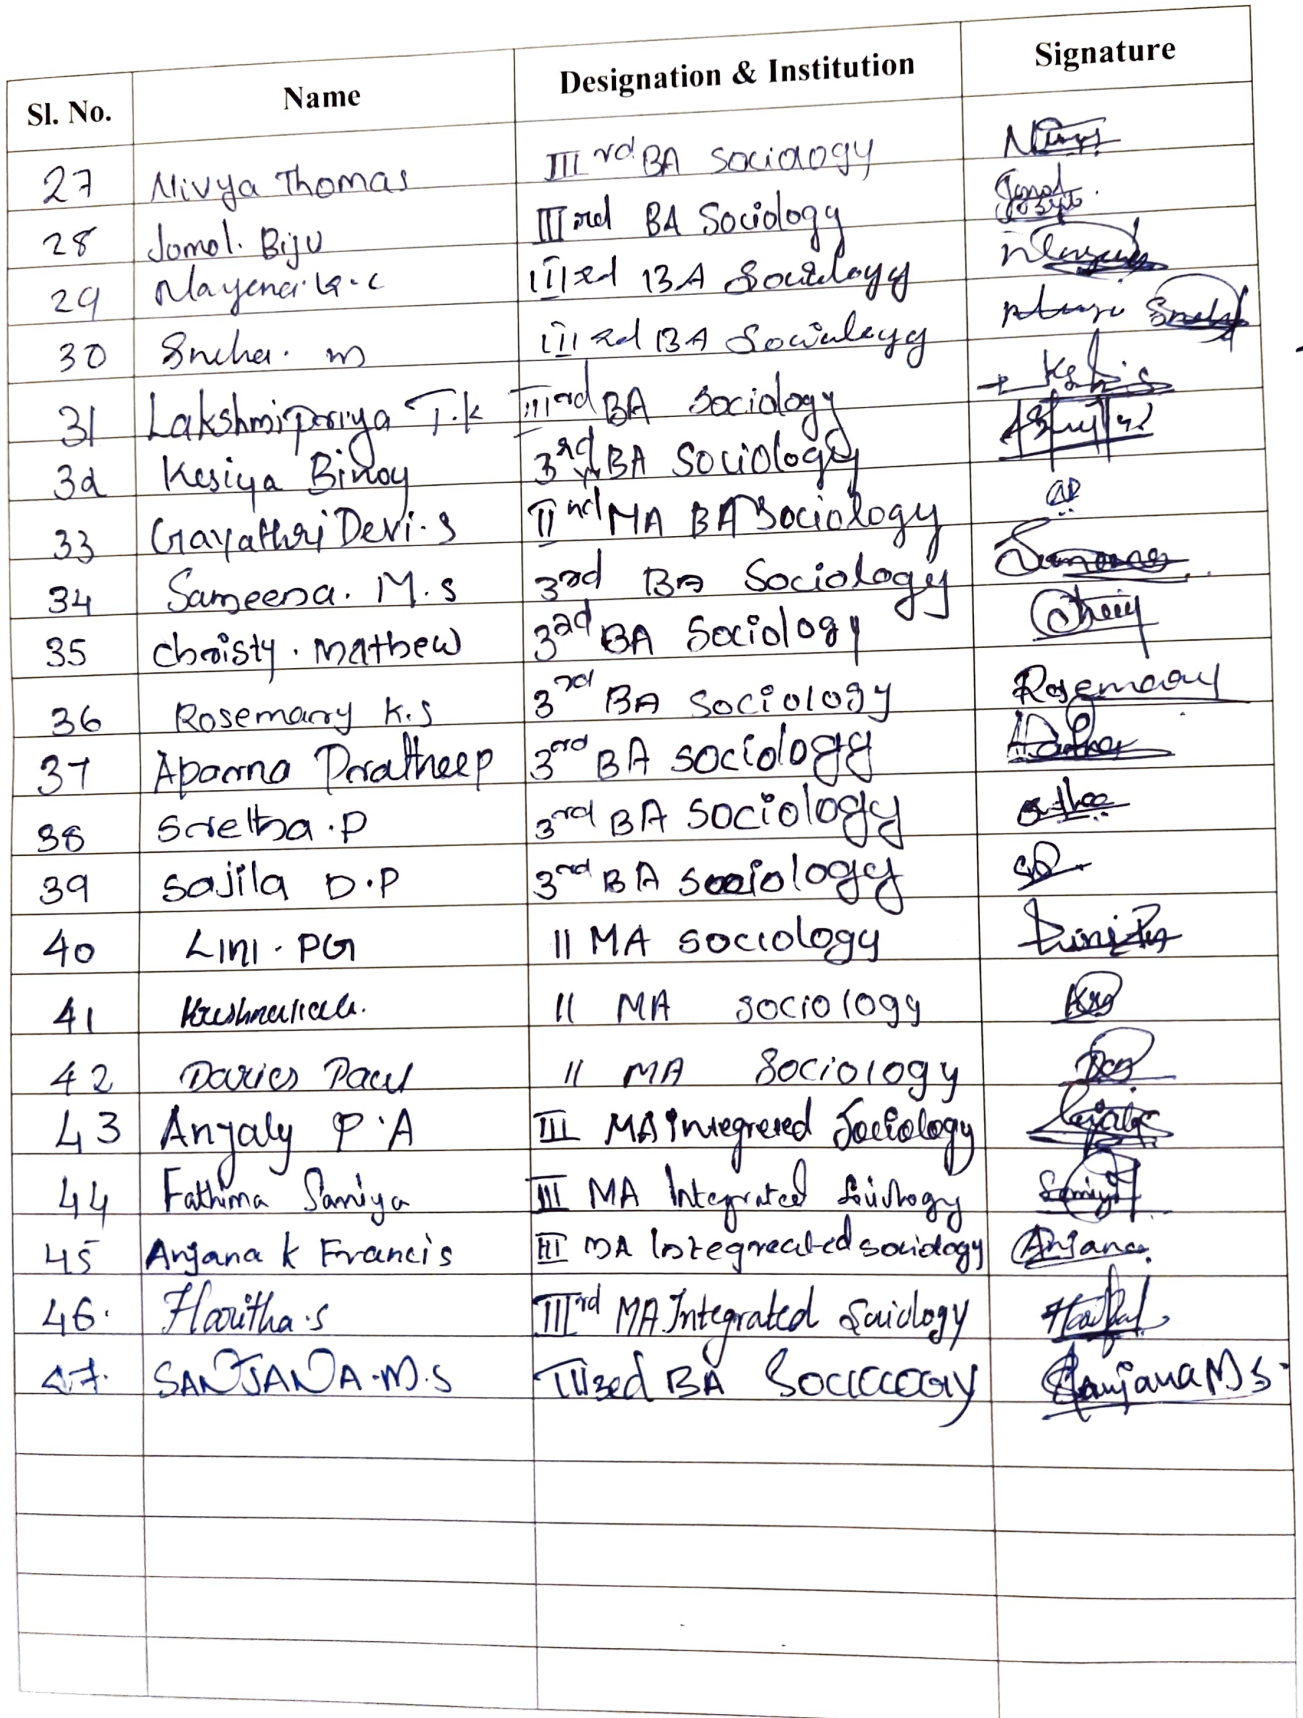 Sl. No. Name Designation & Institution Signature
27 Nivya Thomas IIIrd BA Sociology
28 Jomol. Biju IIIrd BA Sociology
29 Nayana. K.C IIIrd BA Sociology
30 Sneha. m IIIrd BA Sociology
31 Lakshmipriya T.k IIIrd BA Sociology
32 Kesiya Binoy 3rd yr BA Sociology
33 Gayathri Devi.S IInd MA BA Sociology
34 Sameena. M.s 3rd BA Sociology
35 Christy. Mathew 3rd BA Sociology
36 Rosemary K.S 3rd BA Sociology Rosemary
37 Aparna Pratheep 3rd BA sociology
38 Sretha.P 3rd BA sociology
39 Sajila D.P 3rd BA sociology
40 LINI. PG II MA sociology
41 II MA sociology
42 Davies Paul II MA Sociology
43 Anjaly P.A III MA Integrered Sociology
44 Fathima Saniya III MA Integrated Sociology
45 Anjana k Francis III MA Integreated sociology Anjana
46. Haritha.s IIIrd MA Integrated Sociology
47. SANJANA.M.S IIIrd BA Sanjana M S